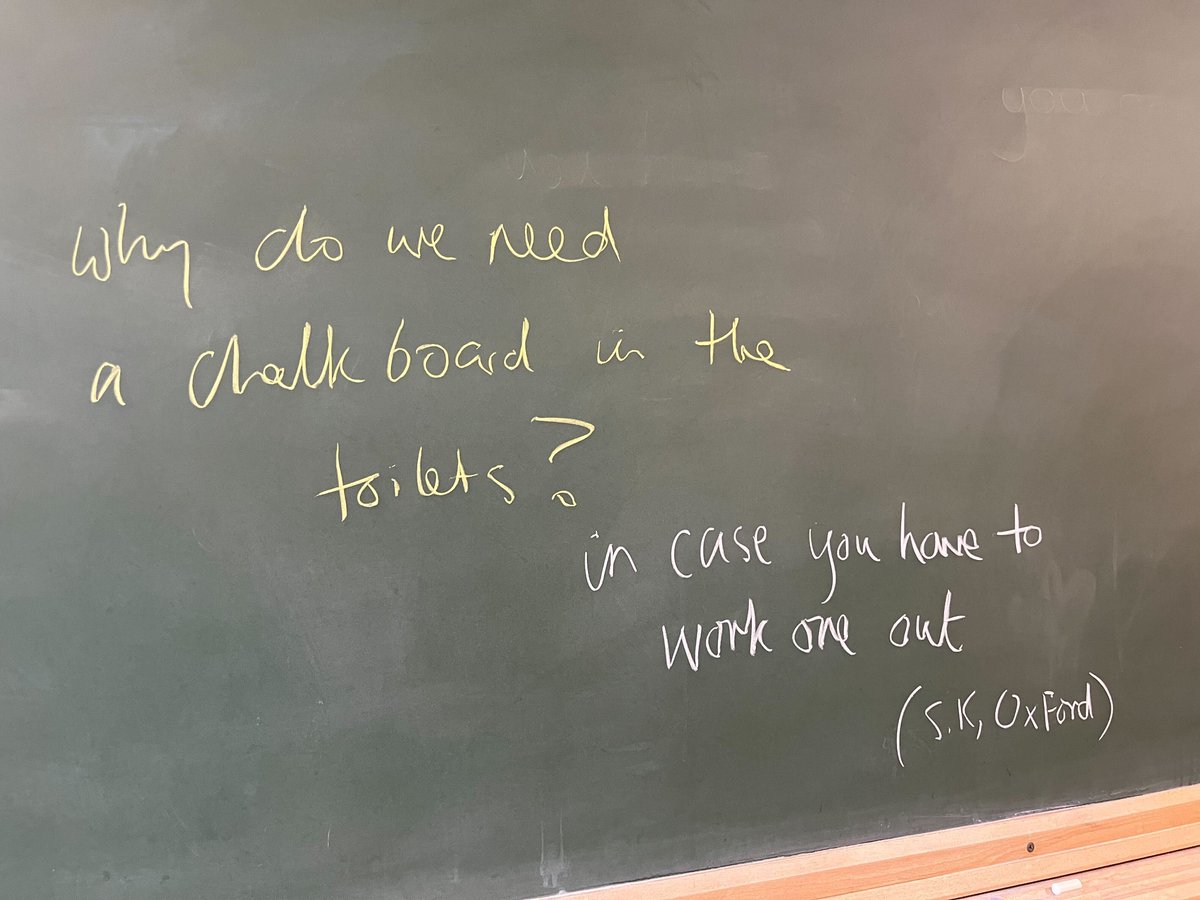 why do we need
a chalkboard in the
toilets?
in case you have to
work one out
(S.K, OxFord)
you